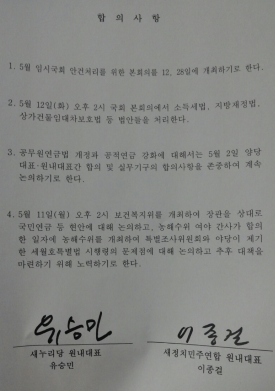 합 의 사 항
1. 5월 임시국회 안건처리를 위한 본회의를 12, 28일에 개최하기로 한다.
2. 5월 12일(화) 오후 2시 국회 본회의에서 소득세법, 지방재정법,
상가건물임대차보호법 등 법안들을 처리한다.
3. 공무원연금법 개정과 공적연금 강화에 대해서는 5월 2일 양당
대표·원내대표간 합의 및 실무기구의 합의사항을 존중하여 계속
논의하기로 한다.
4. 5월 11일(월) 오후 2시 보건복지위를 개최하여 장관을 상대로
국민연금 등 현안에 대해 논의하고, 농해수위 여야 간사가 합의
한 일자에 농해수위를 개최하여 특별조사위원회와 야당이 제기
한 세월호특별법 시행령의 문제점에 대해 논의하고 추후 대책을
마련하기 위해 노력하기로 한다.
유승민 이종걸
새누리당 원내대표 새정치민주연합 원내대표
유승민 이종걸